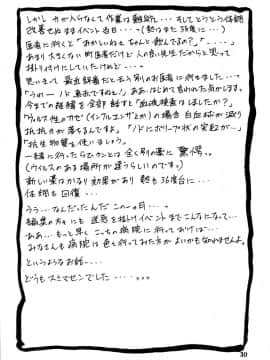 しかし 力が入らなくて作業は難航… そしてとうとう体調
改善せぬままイベント当日…(熱もまた38度に…)
医者に行くと「おかしいねぇ ちゃんと飲んでるの?」「....」
あまり大きくない町医者だけど人の良い先生だからと思って
思いきって 最近評判だと云う別のお医者に行きました…
「うわー ノド真赤ですねぇ」ああ、はじめて言われた気がします。
今までの経過を全部話すと「血液検査はしましたか?」
「ウィルス性のカゼ(インフルエンザとか)の場合 白血球が減り
抵抗力が落ちるんですよ」「ノドにポリープ状の
「抗生物質を使いましょう。」
一緒に行ったらむクンとは全く別の薬に驚愕。
(ウィルスのある場所が違うらしいのです。)
新しい薬はかなり効果があり 熱も36度台に…
体調も回復…
うう… なんだったんだ この一ヵ月…。
編集の方々にも 迷惑を掛けイベントまでこんなになって…
ああ… もっと早く こっちの病院に行っておけば…
みなさんも病院は色々行ってみた方がよいかもしれませんよ。
というようなお話……
どうもスミマセンでした……。
30